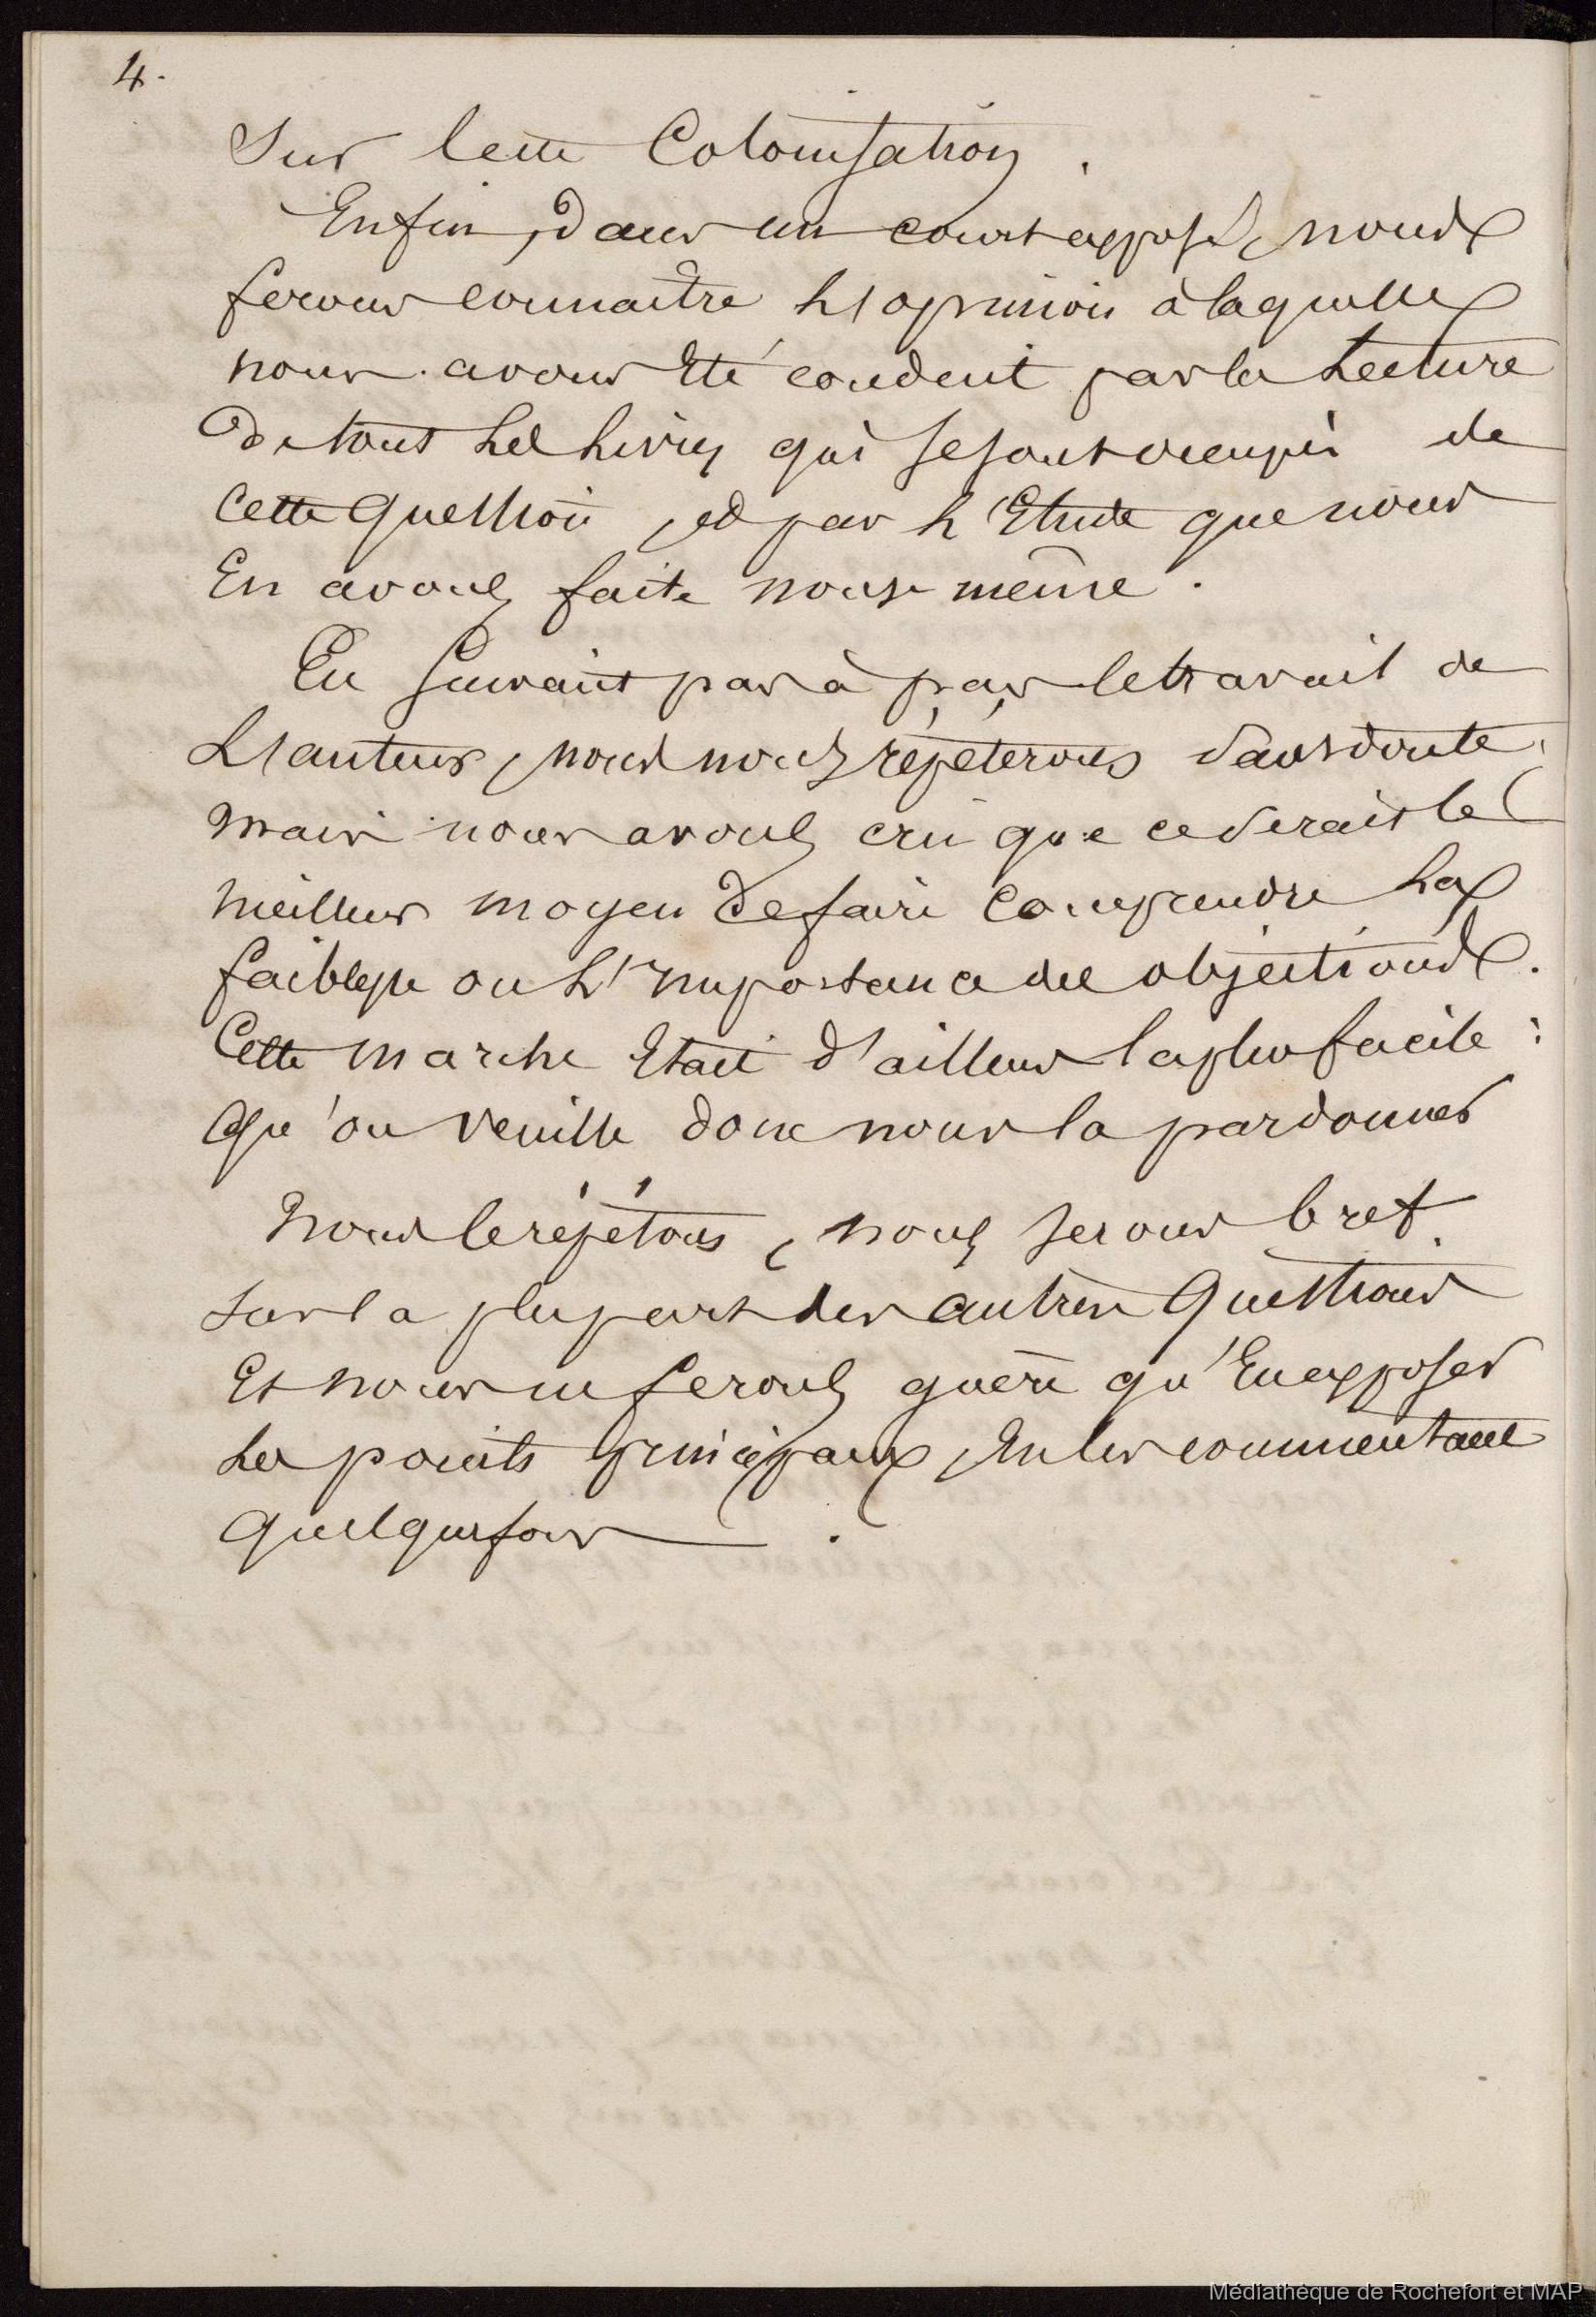 4.
Sur cette Colonisation.
Enfin, dans un court exposé, nous
ferons connaitre l'opinion à laquelle
nous avons Eté conduit par la Lecture
de tous les livres qui se sont occupés de
Cette Question, et par l'Etude que nous
En avons faite nous même.
En Suivant pas à pas le travail de
L'auteur, nous nous répéterons sans doute,
mais nous avons cru que ce serait le
meilleur moyen de faire Comprendre la
faiblesse ou l'importance des objections.
Cette marche Etait d'ailleurs la plus facile :
Qu'on veuille donc nous la pardonner
Nous le répétons, nous serons bref
sur la plupart des autres Questions
Et nous ne ferons guère qu'En exposer
les points principaux, En les commentant
Quelquefois.
Médiathèque de Rochefort et MAP